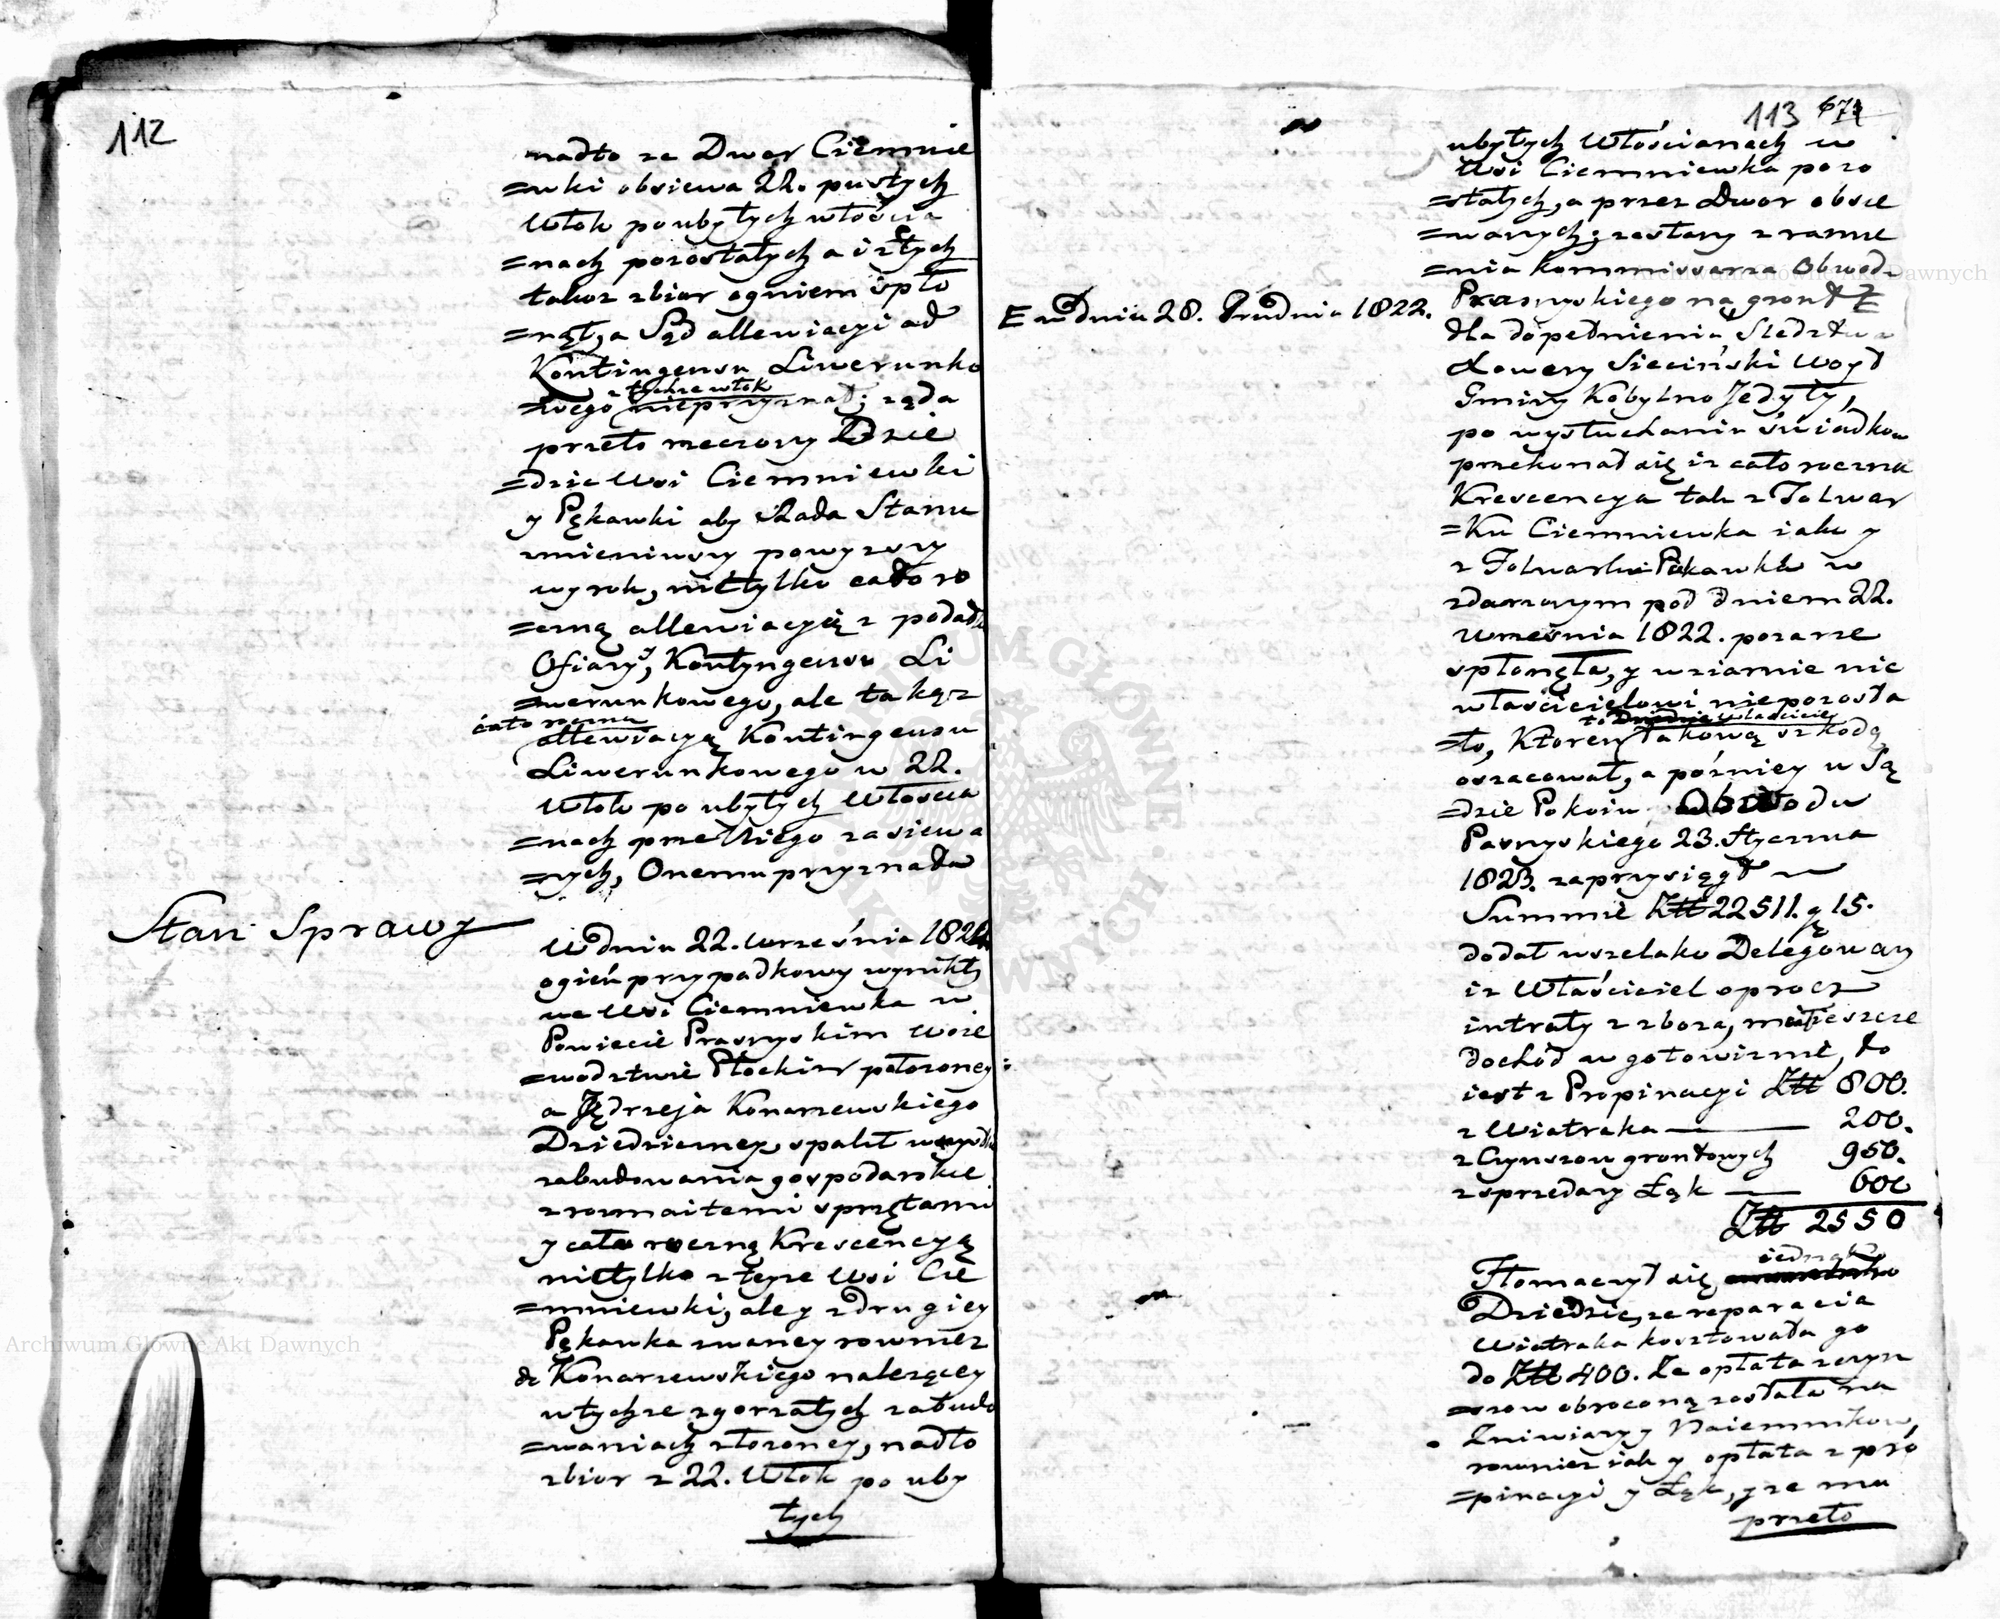 112
nadto ze Dwor Ciemnie
=wki obsiewa 22. pustych
Włok po ubyłych włościa
=nach pozostałych a i z tych
takoż zbior ogniem spło
=nął, a Sąd allewiacyi od
Kontingensu Liwerunko
z tychże włok
=wego nieprzyznał; żąda
przeto rzeczony Dzie
=dzic Wsi Ciemniewki
y Pękawki aby Rada Stanu
zmieniwszy powyższy
wyrok, nietylko cało ro
=czną allewiacyią z podatku
Ofiary, Kontyngensu Li
=werunkowego, ale takąż
cało roczną
allewiacyą Kontingensu
Liwerunkowego w 22.
Włok po ubyłych Włościa
=nach przez Niego zasiewa
=nych, Onemu przyznała
Stan Sprawy
W dniu 22. Września 1822
ogień przypadkowy wynikły
we Wsi Ciemniewka w
Powiecie Prasnyskim Woie
=wodztwie Płockim położoney
a Jędrzeja Konarzewskiego
Dziedziczney, spalił wszystkie
zabudowania gospodarskie
z rozmaitemi sprzętami
y cało roczną Krescencyą
nietylko z teyże Wsi Cie
=mniewki, ale y z drugiey
Pękawka zwaney rownież
do Konarzewskiego należącey
w tychże zgorzałych zabudo
=waniach złożoney, nadto
zbior z 22. Włok po uby
łych
113 671
ubyłych Włościanach w
Wsi Ciemniewka pozo
=stałych, a przez Dwor obsie
=wanych; zesłany z ramie
=nia Kommissarza Obwod:
Prasnyskiego na gront E
E w dniu 28. Grudnia 1822.
dla dopełnienia Sledztwa
Xawery Sieciński Woyt
Gminy Kobylno Jedyły,
po wysłuchaniu świadkow
przekonał się iż cało roczna
Krescencya tak z Folwar
=ku Ciemniewka iako y
z Folwarku Pękawka w
zdarzonym pod dniem 22.
Września 1822. pożarze
spłonęła, y w ziarnie nic
właścicielowi niepozosta
to Dziedzic właściciel
=ło, Ktoren takową szkodę
oszacował, a pózniey w Są
=dzie Pokoiu Obwodu
Pasnyskiego 23. Stycznia
1823. zaprzysiągł w
Summie Złł 22511. g 15.
dodał wszelako Delegowany
iż Właściciel oprocz
intraty z zboża, miał ieszcze
dochód w gotowiznie, to
iest z Propinacyi Złł 800.
z Wiatraka — 200.
z Czynszow grontowych 950.
z sprzedaży Łąk — 600
Złł 2550
iednak
Tłomaczył się
Dziedzic, że reparacia
Wiatraka kosztowała go
do Złł 400. Że opłata z czyn
=szow obroconą została na
Żniwiarzy y Naiemnikow,
rownież iak y opłata z pro
=pinacyi y Łąk, y że mu
przeto
Archiwum Główne Akt Dawnych
Archiwum Główne Akt Dawnych
ARCHIWUM GŁÓWNE AKT DAWNYCH